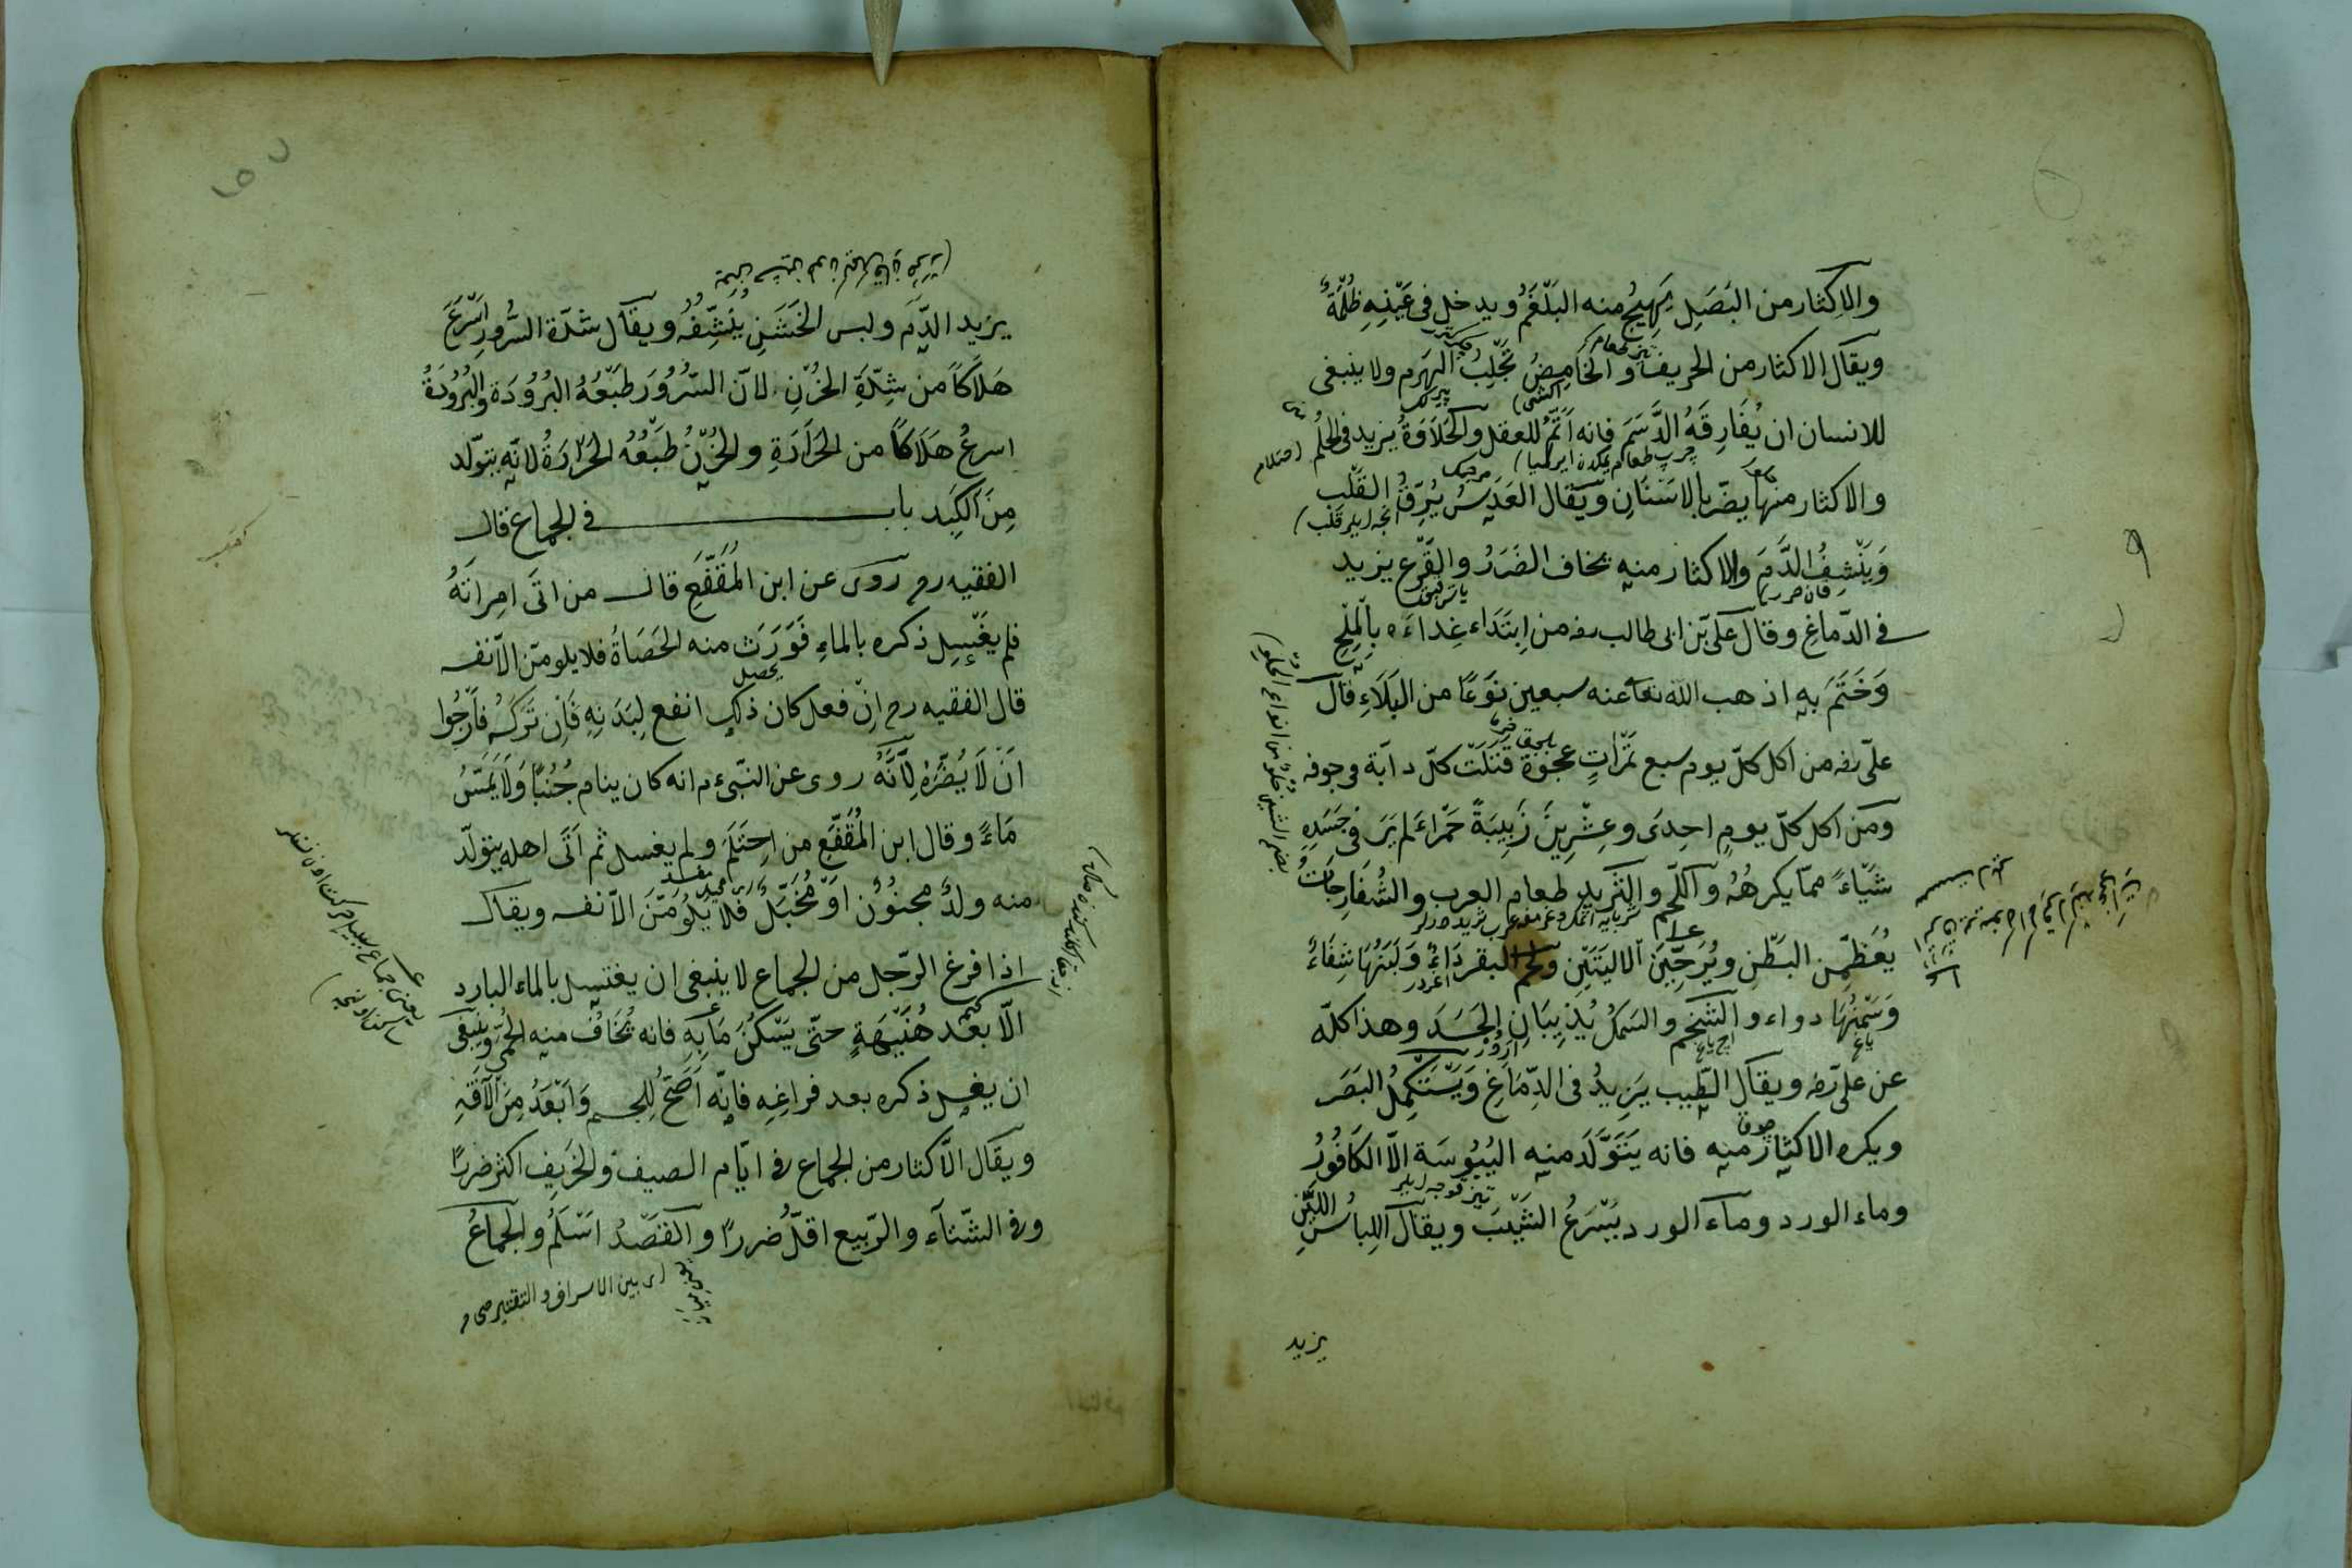 والاكثار من البَصَلِ يَهِيجُ منه البَلْغَمُ ويدخل فى عَيْنِهِ ظُلْمَةٌ
ويقال الاكثار من الحريف والحَامِضُ تَجْلِبُ الهَرَمِ ولا ينبغى
للانسان ان يُفَارِقَهُ الدَّسَمَ فانه اَتَمُّ للعقل والحَلَاوَةُ يزيد فى الحِلْمُ
والاكثار منها يضرّ بالاسْنَانِ ويقال العَدَسُ يُرِقُّ القَلْبِ
وَيَنْشِفُ الدَّمِ والاكثار منه يخاف الضَرَرُ والقَرْعِ يزيد
فى الدّماغِ وقال علىّ بن ابى طالب رضه من اِبْتَدَاء غِداءَه بِالْمِلْحِ
وَخَتَمَ بِهِ اذهب الله تعا عنه سبعين نَوْعًا من البَلَاءِ قال
علىّ رضه من اكل كلّ يوم سبع تَمَرَاتٍ عجوة قتلَتْ كلّ دابّة فى جوفه
ومن اكل كلّ يومٍ احِدىَ وعِشْرِينَ زَبِيبَةً حَمْراءَ لم يَرَ فى جَسَدِهِ
شَيْاءً ممّا يكرهُهُ واللّحم والثَرِيدِ طعام العرب والشُفَارِجَاتُ
يُعَظِّمِن البَطْنِ ويُرَخِّيَنَ الاليَتَيْنِ ولحم البقر دَاءٌ ولَبَنُهَا شِفَاءٌ
وَسَمْنُهَا دواء والشحْمِ والسَمكُ يُذِيبَانِ الجَسَدَ وهذا كلّه
عن على رضه ويقال الطّيب يَزِيدُ فى الدِّمَاغِ وَيَسْتَكْمِلُ البَصَر
ويكره الاكثار منه فانه يَتَوَلَّدَ منه اليُبُوسَة الاّ الكَافُورُ
وماء الورد وماء الورد يُسْرَعُ الشَيْبَ ويقال اللِباسُ اللَيّنِ
يزيد
يزيد الدَّمَ ولبس الخَشَنِ يُنَشِّفُهُ ويقال شدّة السُّرُورِ اَسْرَعَ
هَلَاكًا من شِدَّةِ الحُزْنِ لانّ السُّرُورَ طَبْعُهُ البُرُودَة والبُرُودَةُ
اسرعُ هَلَاكًا من الحَرَارَةِ والحُزْنُ طَبْعُهُ الحَرَارَةُ لانّه يتولّد
مِنَ الكَبِد باب فى الجماع قال
الفقيه رح روى عن ابن المُقَفَّعِ قال من اتَى امِراتَهُ
فلم يغْسِل ذكره بالماءِ فَوَرَثَ منه الحَصَاةُ فلا يلومنّ الاّ نفسه
قال الفقيه رح انْ فعل كان ذلك انفع لِبَدَنِهِ فَاِن تَرَكَهُ فاَرْجُوا
اَنْ لَا يُضّرُّهُ لِاَنَّهُ روى عن النبّىء م انه كان ينام جُنُبًا وَلَا يَمَسُّ
مَاءً وقال ابن المُقَفَّعِ من احِتَلَمَ ولم يغسل ثم اَتَى اهله يتولّد
منه ولدٌ مجنُوُنٌ اوْ مُخَبَّلٌ فلا يَلُومَنَّ الاّ نفسه ويقال
اذا فرغ الرّجل من الجماع لا ينبغى ان يغتسل بالماء البارد
الاّ بعد هُنَيْهَةٍ حتّى يَسْكُنَ مَا بِهِ فانه تُخَافُ منه الحُمَّى وينبغى
ان يغسل ذكره بعد فراغِهِ فانّه اَصَحُّ للجسم وَاَبْعَدُ مِنَ الآفَةِ
ويقال الاّكثار من الجماع فى ايّام الصيف والخَرِيف اكثر ضررًا
وفى الشّتآء والرّبيع اقلّ ضررًا والقَصْدُ اسْلَمُ والجماعُ
اى بين الاسراف والتقتير